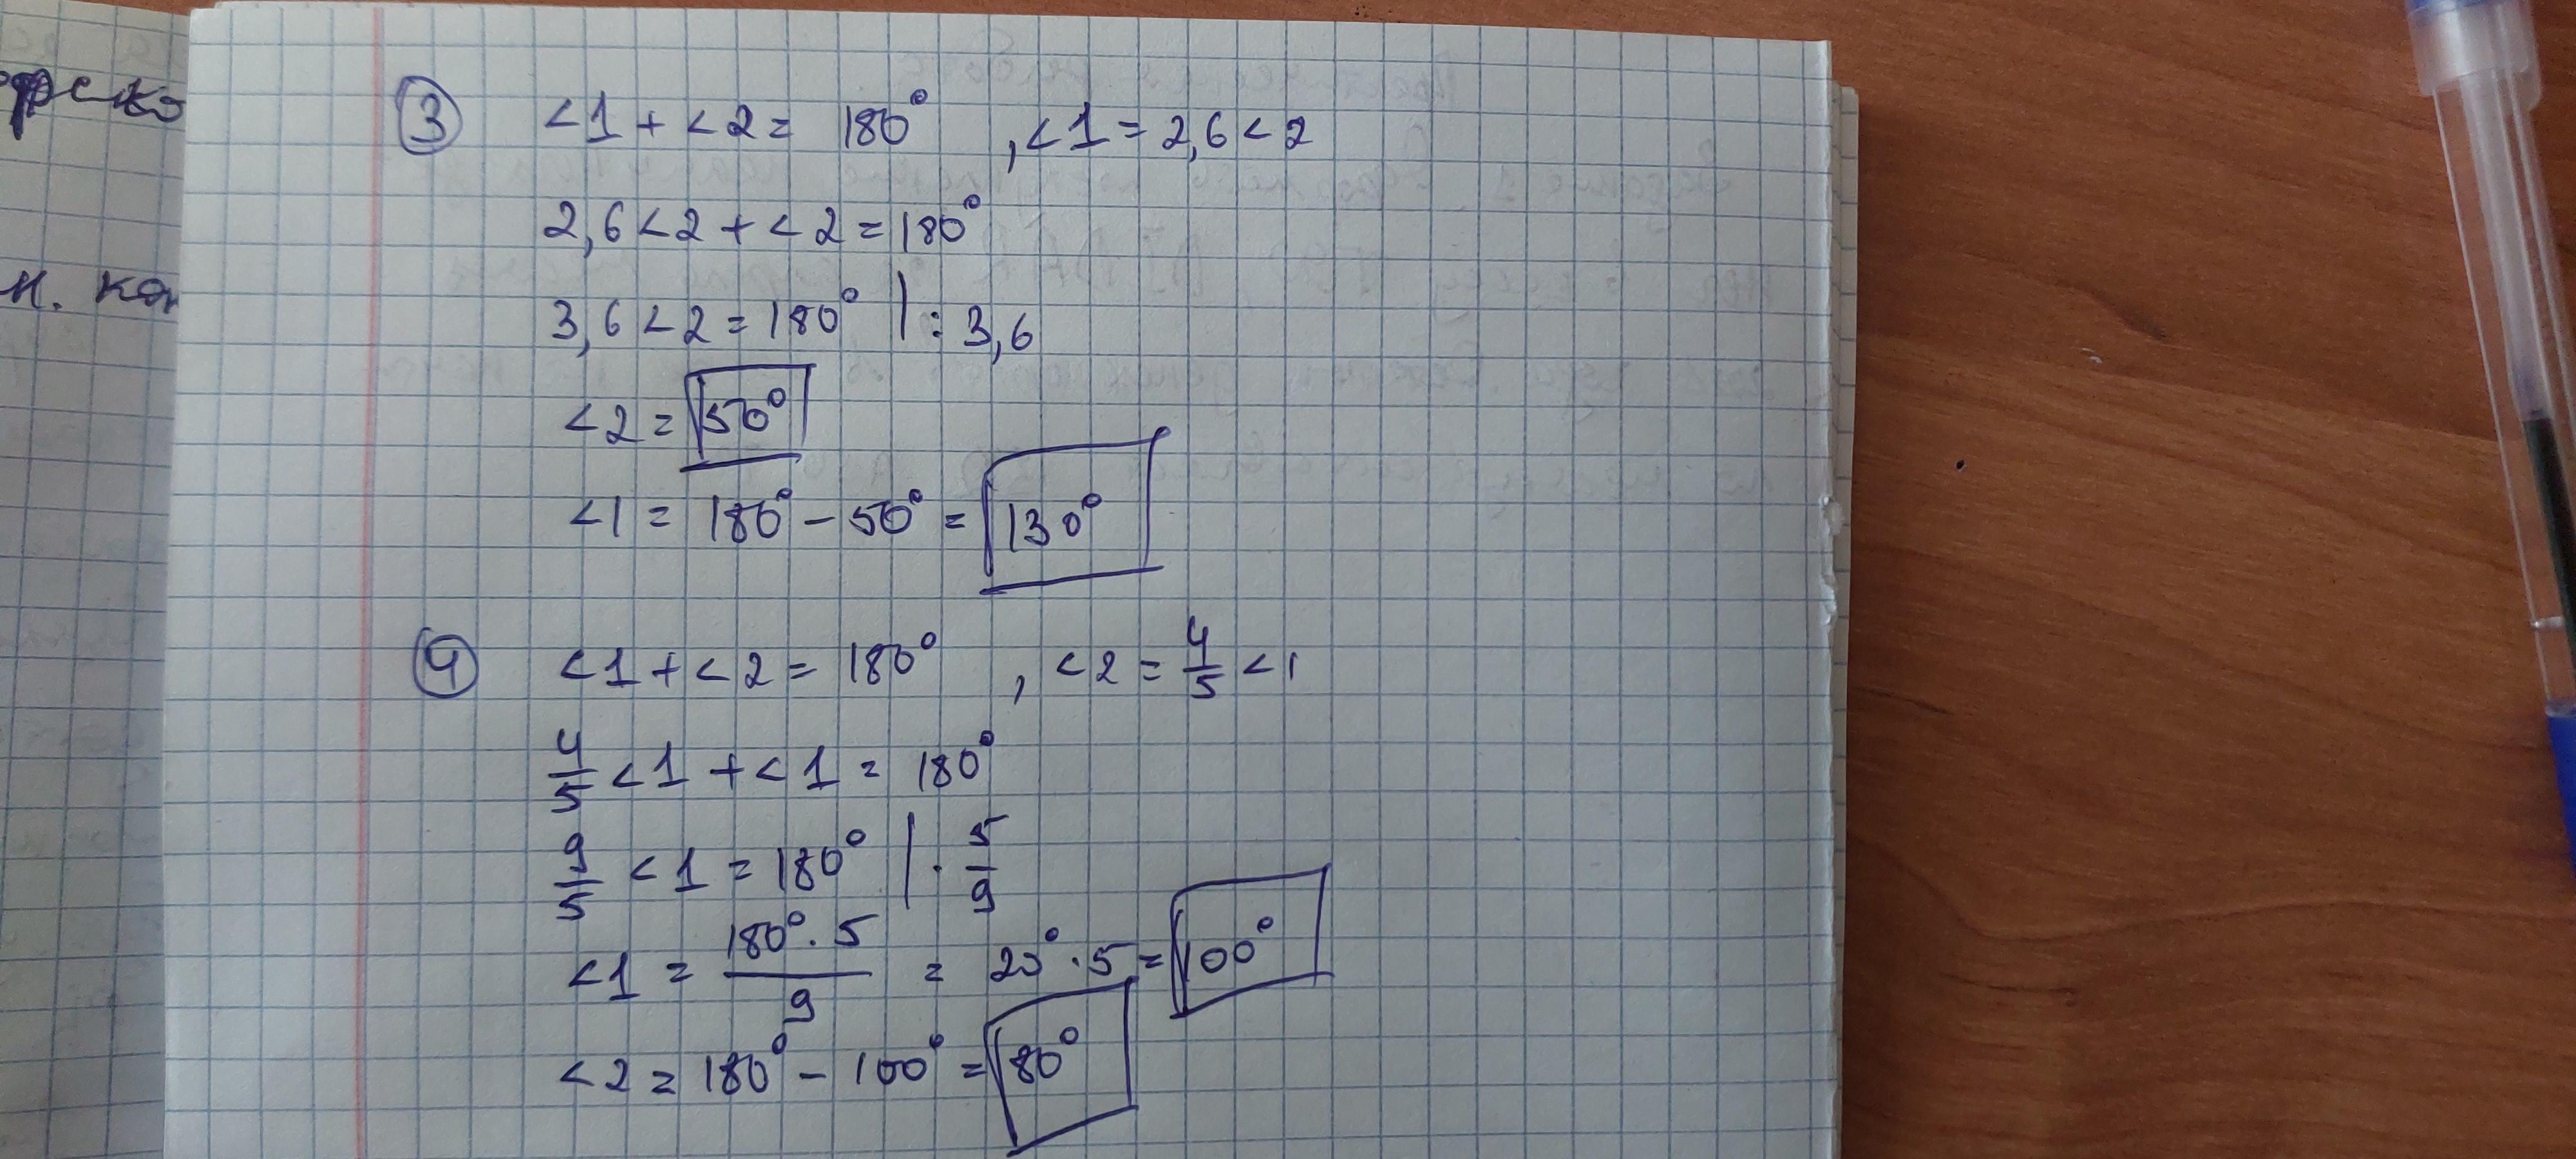 ③ <1 + <2 = 180° , <1 = 2,6 <2
2,6 <2 + <2 = 180°
3,6 <2 = 180° | : 3,6
<2 = 50°
<1 = 180° - 50° = 130°
④ <1 + <2 = 180° , <2 = 4/5 <1
4/5 <1 + <1 = 180°
9/5 <1 = 180° | · 5/9
<1 = 180° · 5 / 9 = 20° · 5 = 100°
<2 = 180° - 100° = 80°